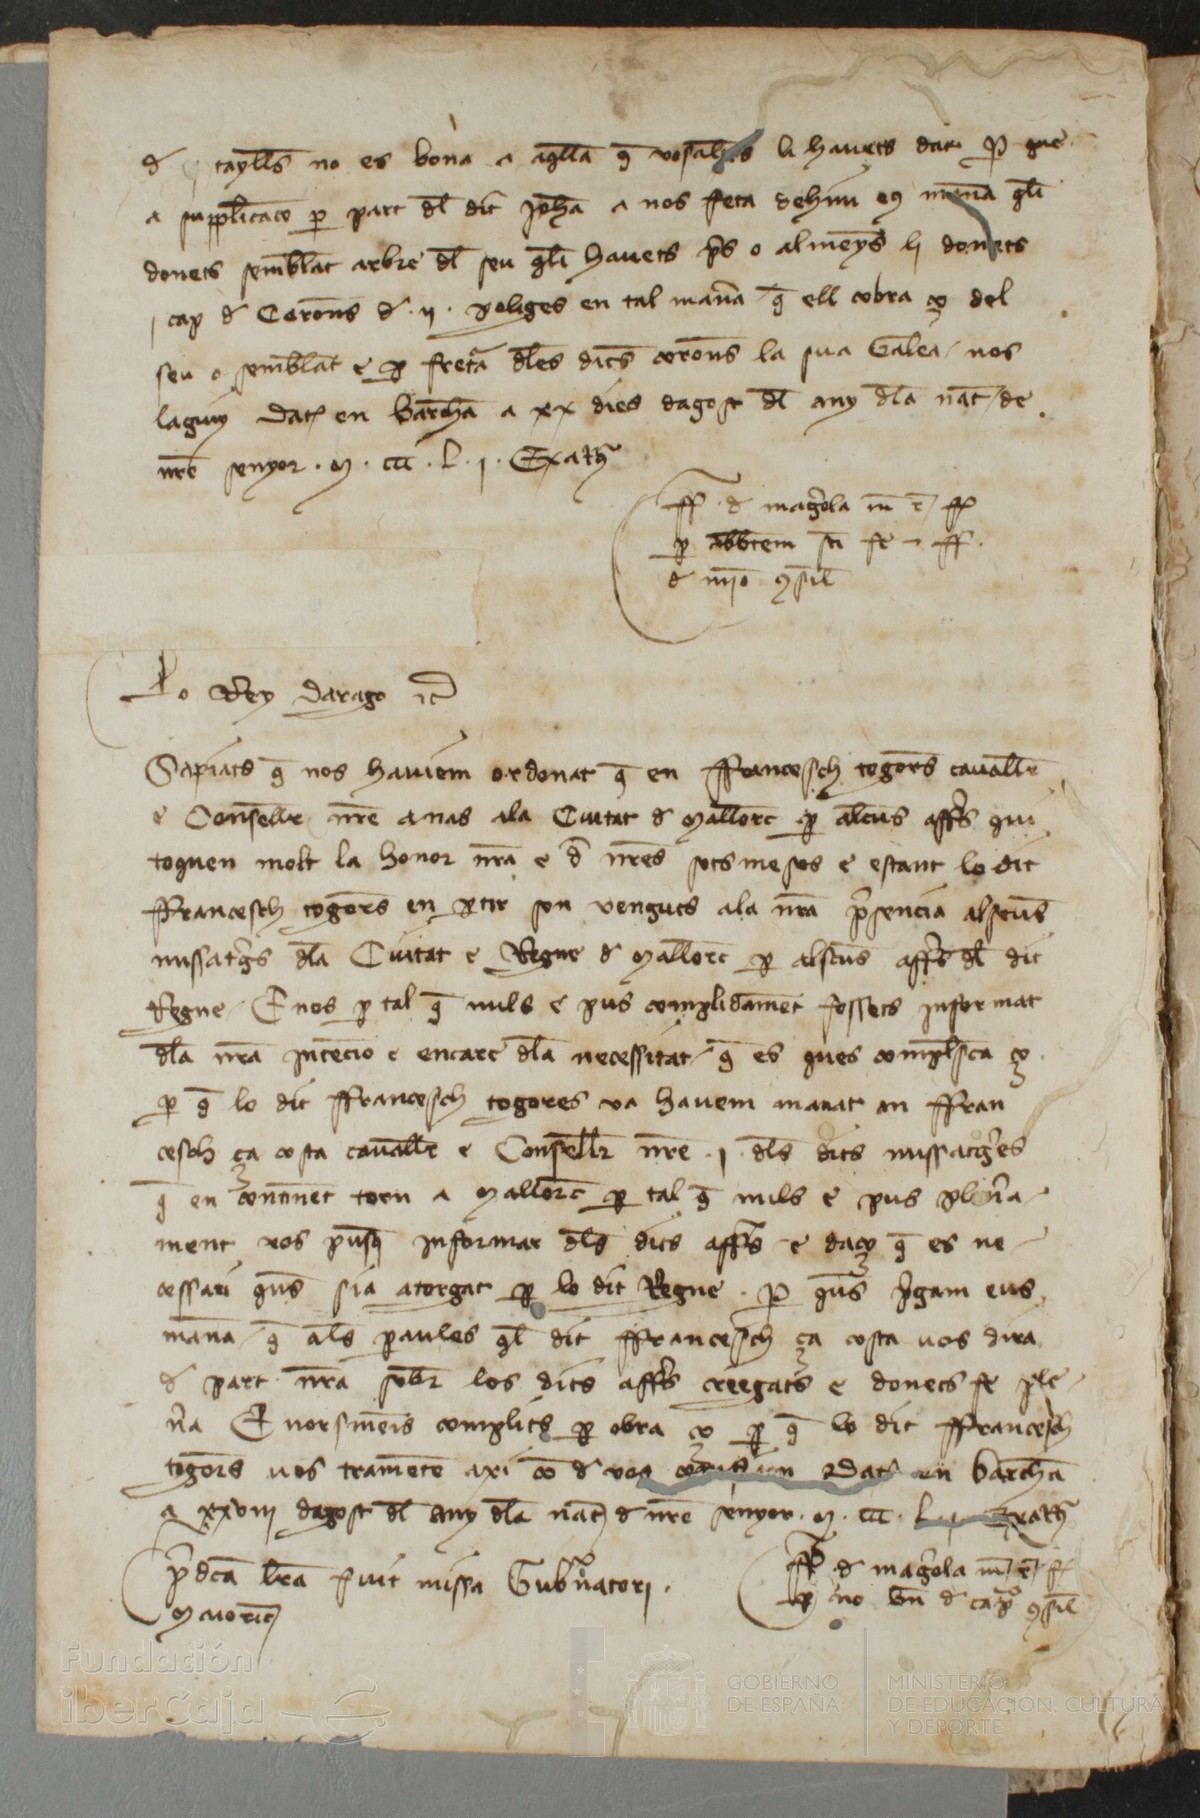 taylls no es bona a aqlla q̄ vosaltres li havets dat. Per que
a supplicacio p̱ part dl dit Johā a nos feta dehim eus manā qli
donets semblāt arbre dl seu qli havets p̄s o almenys li donets
j cap d Corons d .ij. polzes en tal manā q̄ ell cobra ço del
seu o semblāt e p̱ freta dles dits corons la sua Galea nos
laguiy Dat en Barchā a xx dies dagost dl any dla nāt de
nr̄e senyor . M . ccc . L . j . Exatus
ffr d magrola
p̱ abbtem
Lo Rey Darago
Sapiats q̄ nos haviem ordonat q̄ en ffrancesch togors cavaller
e Conseller nr̄e anas ala Ciutat d Mallorc̄ p̱ alcuns affrs qui
toquen molt la honor nr̄a e d nr̄es sotsmesos e estant lo dit
ffrancesch togors en ptir son venguts ala nr̄a p̄sencia alscuns
missatgrs dla Ciutat e Regne d Mallorc̄ p̱ alscuns affrs dl dit
Regne E nos p̱ tal q̄ mils e pus complidament fossets informat
dla nr̄a intencio e encare dla necessitat q̄ es ques complisca ço
p̱ q̄ lo dit ffrancesch togores va havem manat an ffran
cesch ça costa cavaller e Conseller nr̄e . j . dls dits missatgers
q̄ en continent torn a Mallorc̄ p̱ tal q̄ mils e pus plenā
ment vos pusq̄ informar dls dits affrs e daço q̄ es ne
cessari quns sia atorgat p̱ lo dit Regne . p̱ quns p̄gam eus
manā q̄ als paules ql dit ffrancesch ça costa vos dira
d part nr̄a sobr los dits affrs creegats e donets fe ple
na E norsmenys complits p̱ obra ço p̱ q̄ lo dit ffrancesch
togors vos trametē axi co d vos Dat en Barchā
a xxviij dagost dl any dla nāt d nr̄e senyor . M . ccc . L . j . Exatus
p̄dcā lr̄a fuit missa Gubnatori .
Maioric̄
ffr d magrola
Fundación
iberCaja
GOBIERNO
DE ESPAÑA
MINISTERIO
DE EDUCACIÓN, CULTURA
Y DEPORTE